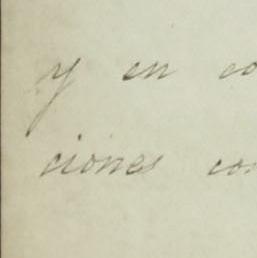 y en co
ciones con